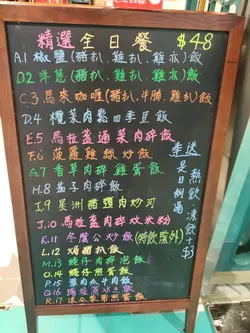 精選全日餐 $48
A.1 椒鹽(豬扒、雞扒、雞亦)飯
B.2 洋蔥(豬扒、雞扒、雞亦)飯
C.3 馬來咖喱(豬扒、牛腩、雞扒)飯
D.4 欖菜肉鬆四季豆飯
E.5 馬拉盞通菜肉碎飯
F.6 菠蘿雞絲炒飯
G.7 香草肉碎雞蛋飯
H.8 茄子肉碎飯
I.9 星洲豬肉炒河
J.10 馬拉盞肉碎炒米粉
K.11 冬蔭公炒飯(凍飲除外)
L.12 焗豬扒飯
M.13 蠔仔肉碎泡飯
O.14 蠔仔煎蛋飯
P.15 牛肉飯
Q.16
R.17 煎蛋飯
奉送是日例湯
熱飲/凍飲+$3